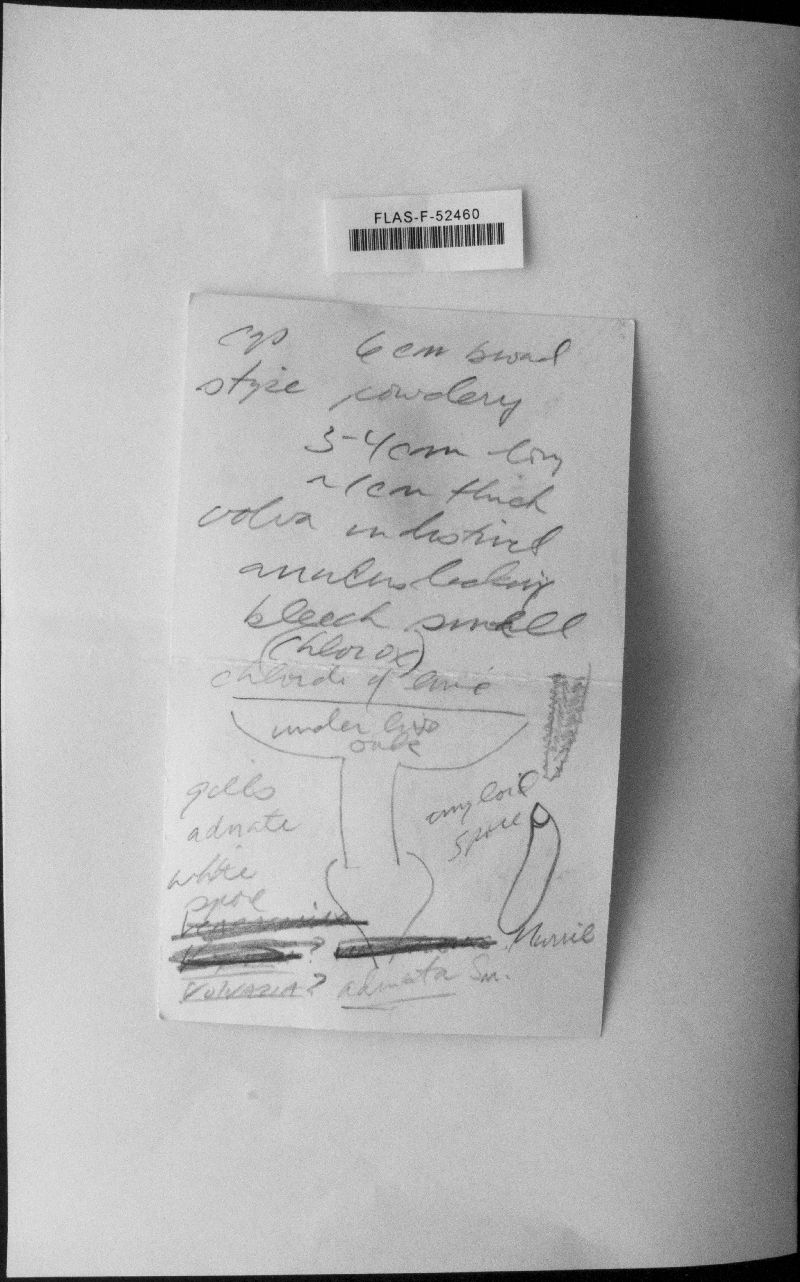 FLAS-F-52460
cap 6 cm broad
stipe powdery
3-4 cm long
~1 cm thick
volva indistinct
annulus lacking
bleech smell
(Chlorox)
chloride of lime
under live
oake
gills
adnate
amyloid
spore
white
spore
? Murril
Volvaria? adnata Sm.